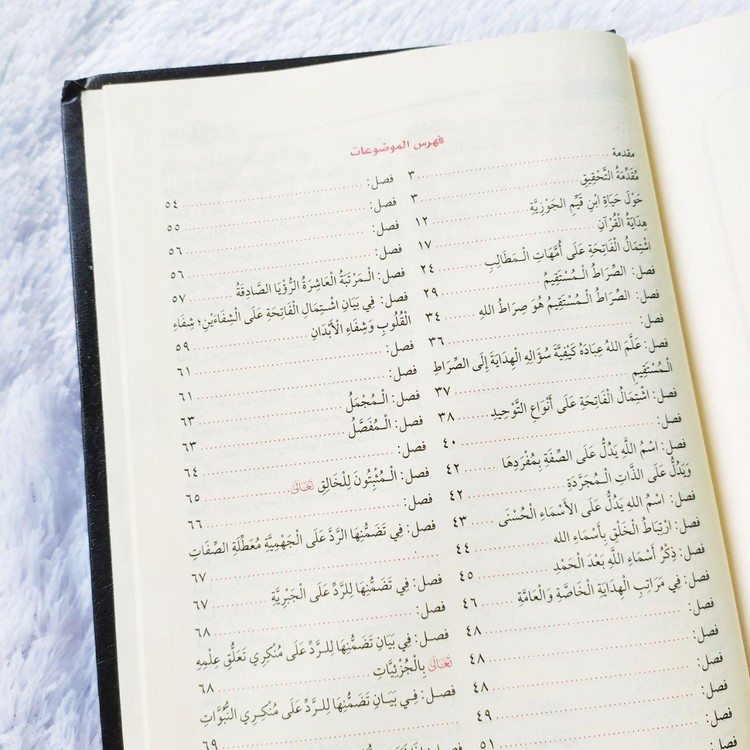 فهرس الموضوعات
مقدمة ٣
مُقَدِّمَةُ التَّحْقِيقِ ٣
حَوْلَ حَيَاةِ ابْنِ قَيِّمِ الجَوْزِيَّةِ ١٢
هِدَايَةُ الْقُرْآنِ ١٧
اشْتِمَالُ الْفَاتِحَةِ عَلَى أُمَّهَاتِ الْـمَطَالِبِ ٢٤
فصل: الصِّرَاطُ الْـمُسْتَقِيمُ ٢٩
فصل: الصِّرَاطُ الْـمُسْتَقِيمُ هُوَ صِرَاطُ اللهِ ٣٤
فصل: ٣٦
فصل: عَلَّمَ اللهُ عِبَادَهُ كَيْفِيَّةَ سُؤَالِهِ الْهِدَايَةَ إِلَى الصِّرَاطِ
الْـمُسْتَقِيمِ ٣٧
فصل: اشْتِمَالُ الْفَاتِحَةِ عَلَى أَنْوَاعِ التَّوْحِيدِ ٣٨
فصل: ٤٠
فصل: اسْمُ اللَّهِ يَدُلُّ عَلَى الصِّفَةِ بِمُفْرَدِهَا ٤٢
وَيَدُلُّ عَلَى الذَّاتِ الْـمُجَرَّدَةِ ٤٢
فصل: اسْمُ اللهِ يَدُلُّ عَلَى الأَسْمَاءِ الْحُسْنَى ٤٣
فصل: ارْتِبَاطُ الْخَلْقِ بِأَسْمَاءِ الله ٤٤
فصل: ذِكْرُ أَسْمَاءِ اللَّهِ بَعْدَ الْحَمْدِ ٤٥
فصل: فِي مَرَاتِبِ الْهِدَايَةِ الْخَاصَّةِ وَالْعَامَّةِ ٤٦
فصل: ٤٨
فصل: ٤٨
فصل: ٤٨
فصل: ٤٩
فصل: ٥١
فصل: ٥٤
فصل: ٥٥
فصل: ٥٦
فصل: ٥٦
فصل: الْـمَرْتَبَةُ الْعَاشِرَةُ الرُّؤْيَا الصَّادِقَةُ ٥٧
فصل: فِي بَيَانِ اشْتِمَالِ الْفَاتِحَةِ عَلَى الْشِفَاءَيْنِ؛ شِفَاءِ
الْقُلُوبِ وَشِفَاءِ الْأَبْدَانِ ٥٩
فصل: ٦١
فصل: ٦١
فصل: الْـمُجْمَلُ ٦٣
فصل: الْـمُفَصَّلُ ٦٣
فصل: ٦٤
فصل: الْـمُثْبِتُونَ لِلْخَالِقِ تَعَالَى ٦٥
فصل: ٦٦
فصل: فِي تَضَمُّنِهَا الرَّدَّ عَلَى الْجَهْمِيَّةِ مُعَطِّلَةِ الصِّفَاتِ
٦٧
فصل: فِي تَضَمُّنِهَا لِلرَّدِّ عَلَى الْجَبْرِيَّةِ ٦٧
فصل: ٦٨
فصل: فِي بَيَانِ تَضَمُّنِهَا لِلـرَّدِّ عَلَى مُنْكِرِي تَعَلُّقِ عِلْمِهِ
تَعَالَى بِالْجُزْئِيَّاتِ ٦٨
فصل: فِـي بَيَـانِ تَضَمُّنِهَا لِلرَّدِّ عَلَى مُنْكِـرِي النُّبُوَّاتِ
٦٩